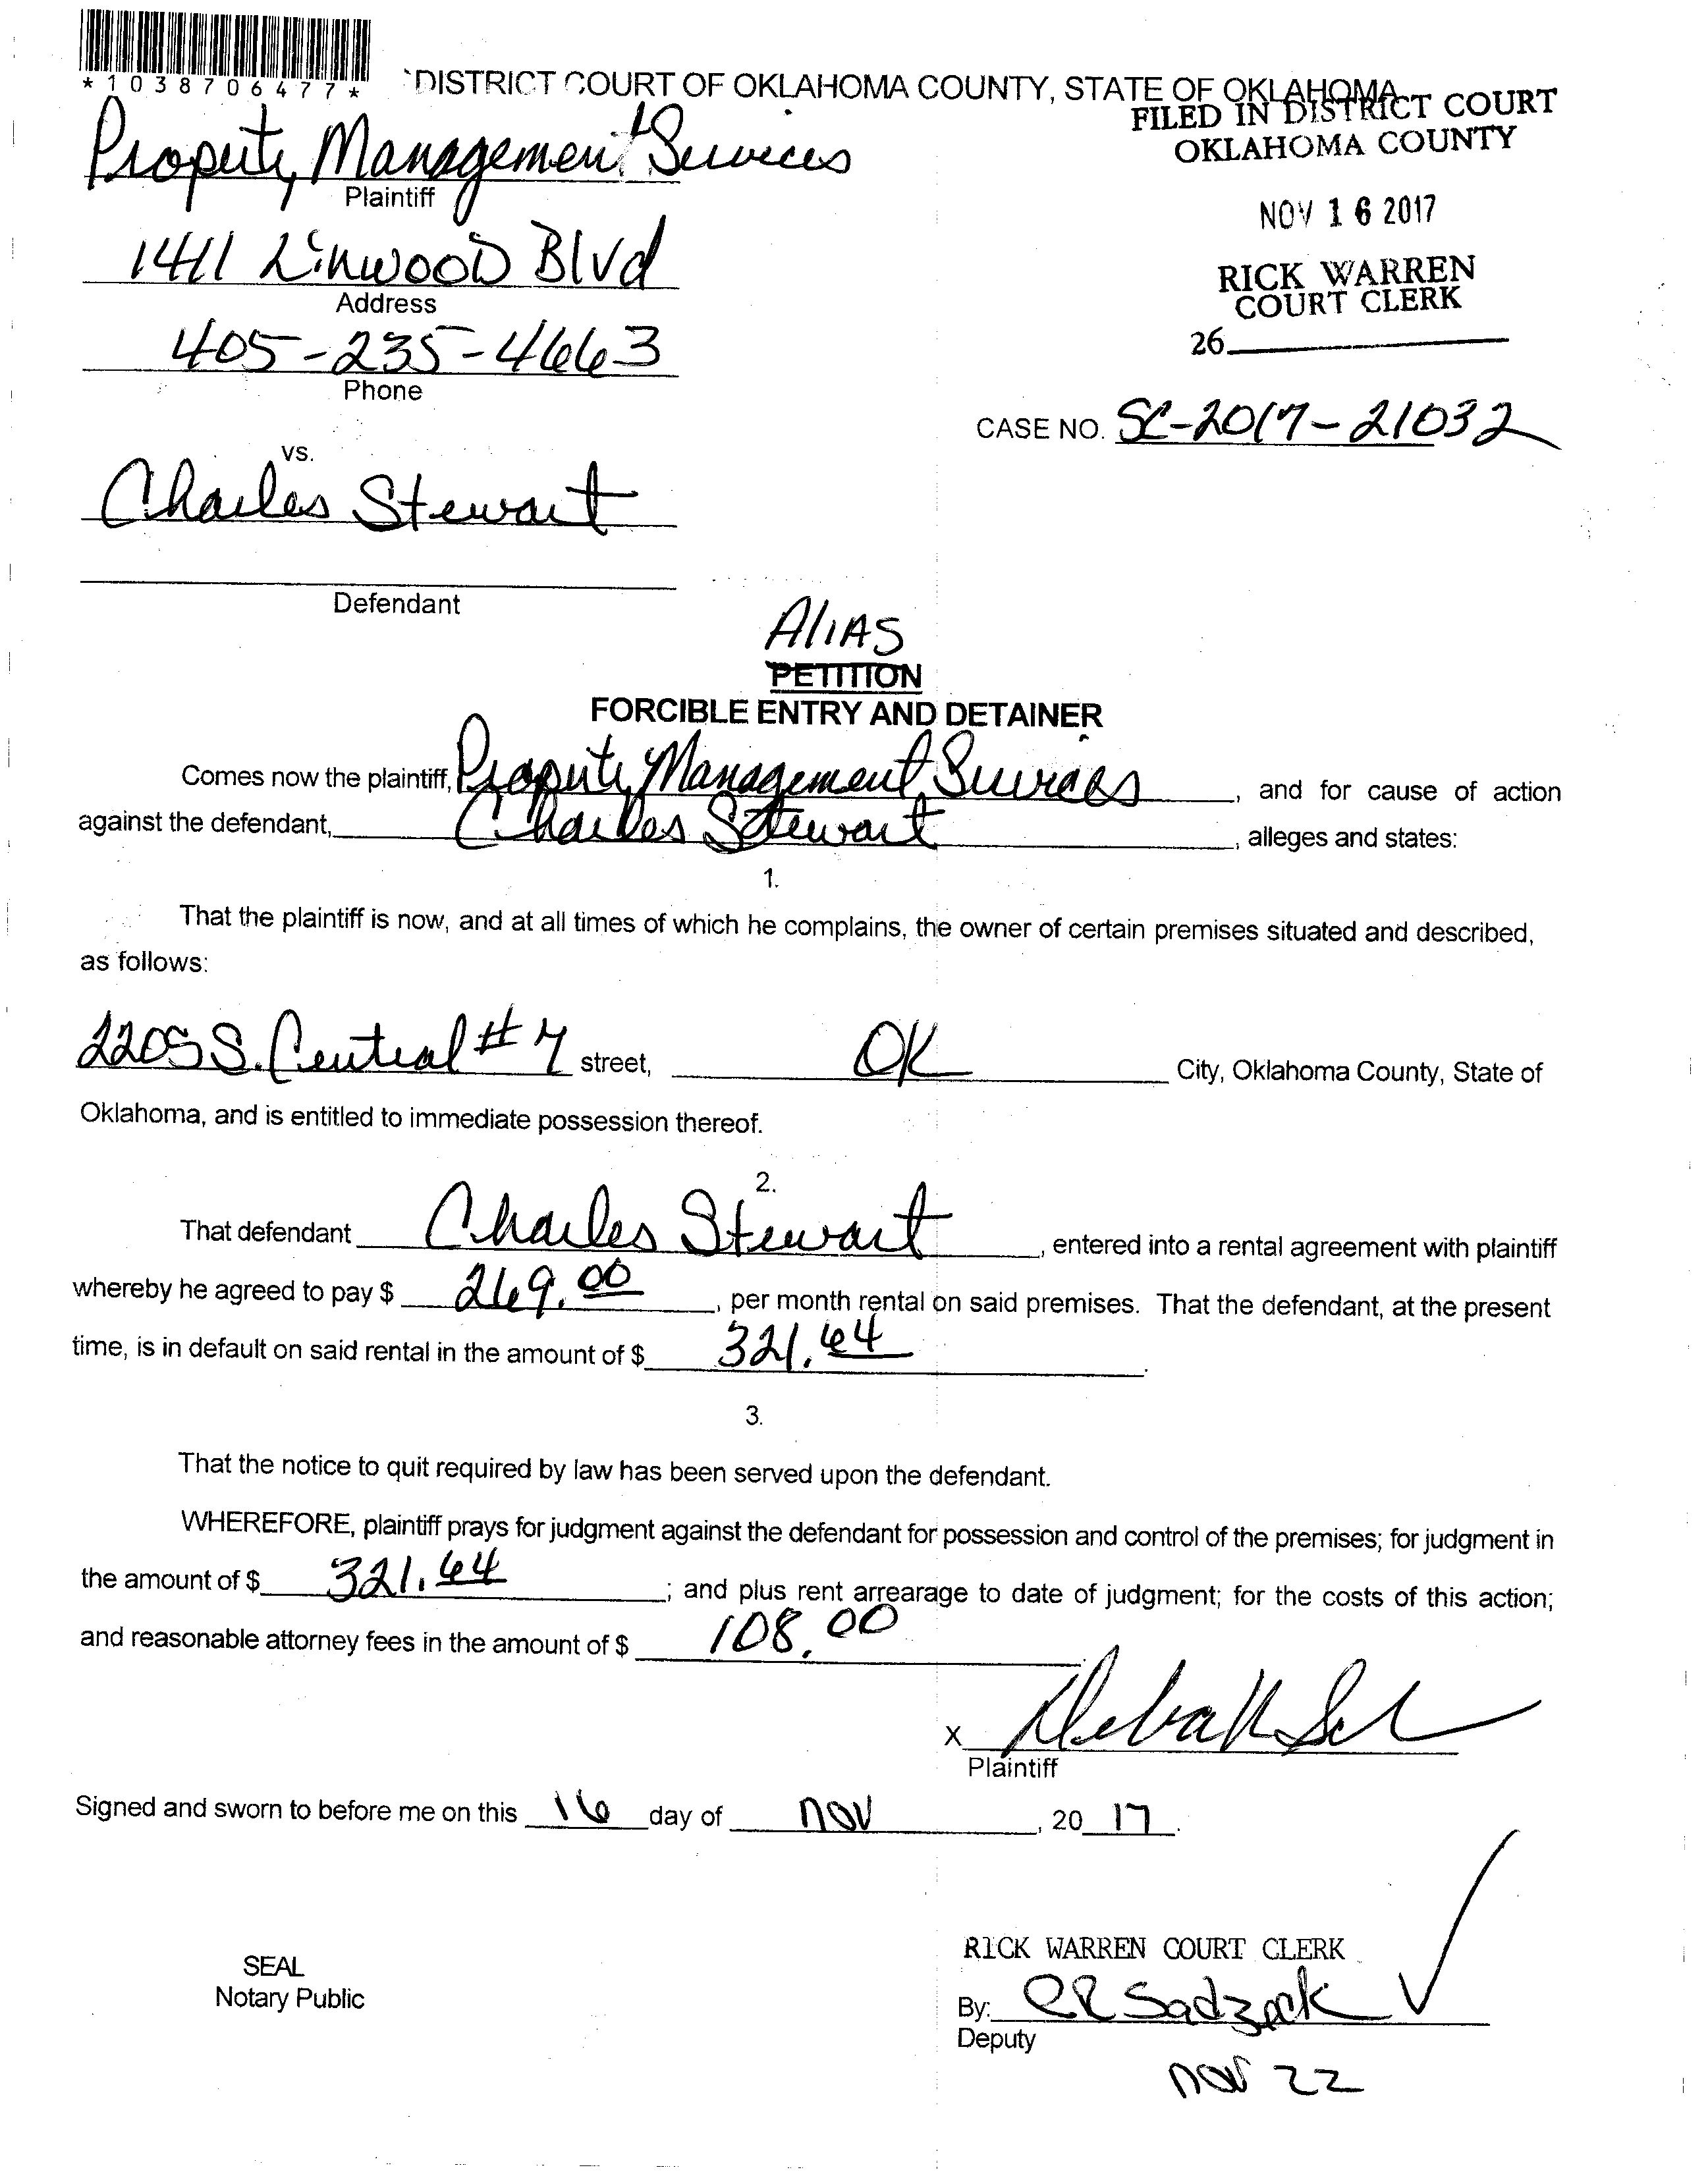 *1038706477*
DISTRICT COURT OF OKLAHOMA COUNTY, STATE OF OKLAHOMA
FILED IN DISTRICT COURT
OKLAHOMA COUNTY
NOV 16 2017
RICK WARREN
COURT CLERK
26
Property Management Services
Plaintiff
1411 Linwood Blvd
Address
405-235-4663
Phone
CASE NO. SC-2017-21032
vs.
Charles Stewart
Defendant
Alias
PETITION
FORCIBLE ENTRY AND DETAINER
Comes now the plaintiff, Property Management Services, and for cause of action
against the defendant, Charles Stewart, alleges and states:
1.
That the plaintiff is now, and at all times of which he complains, the owner of certain premises situated and described,
as follows:
2205 S. Central #7 street, OK City, Oklahoma County, State of
Oklahoma, and is entitled to immediate possession thereof.
2.
That defendant Charles Stewart, entered into a rental agreement with plaintiff
whereby he agreed to pay $ 269.00, per month rental on said premises. That the defendant, at the present
time, is in default on said rental in the amount of $ 321.64.
3.
That the notice to quit required by law has been served upon the defendant.
WHEREFORE, plaintiff prays for judgment against the defendant for possession and control of the premises; for judgment in
the amount of $ 321.64; and plus rent arrearage to date of judgment; for the costs of this action;
and reasonable attorney fees in the amount of $ 108.00.
X
Plaintiff
Signed and sworn to before me on this 16 day of nov, 20 17.
RICK WARREN COURT CLERK
SEAL
Notary Public
By:
Deputy
nov 22